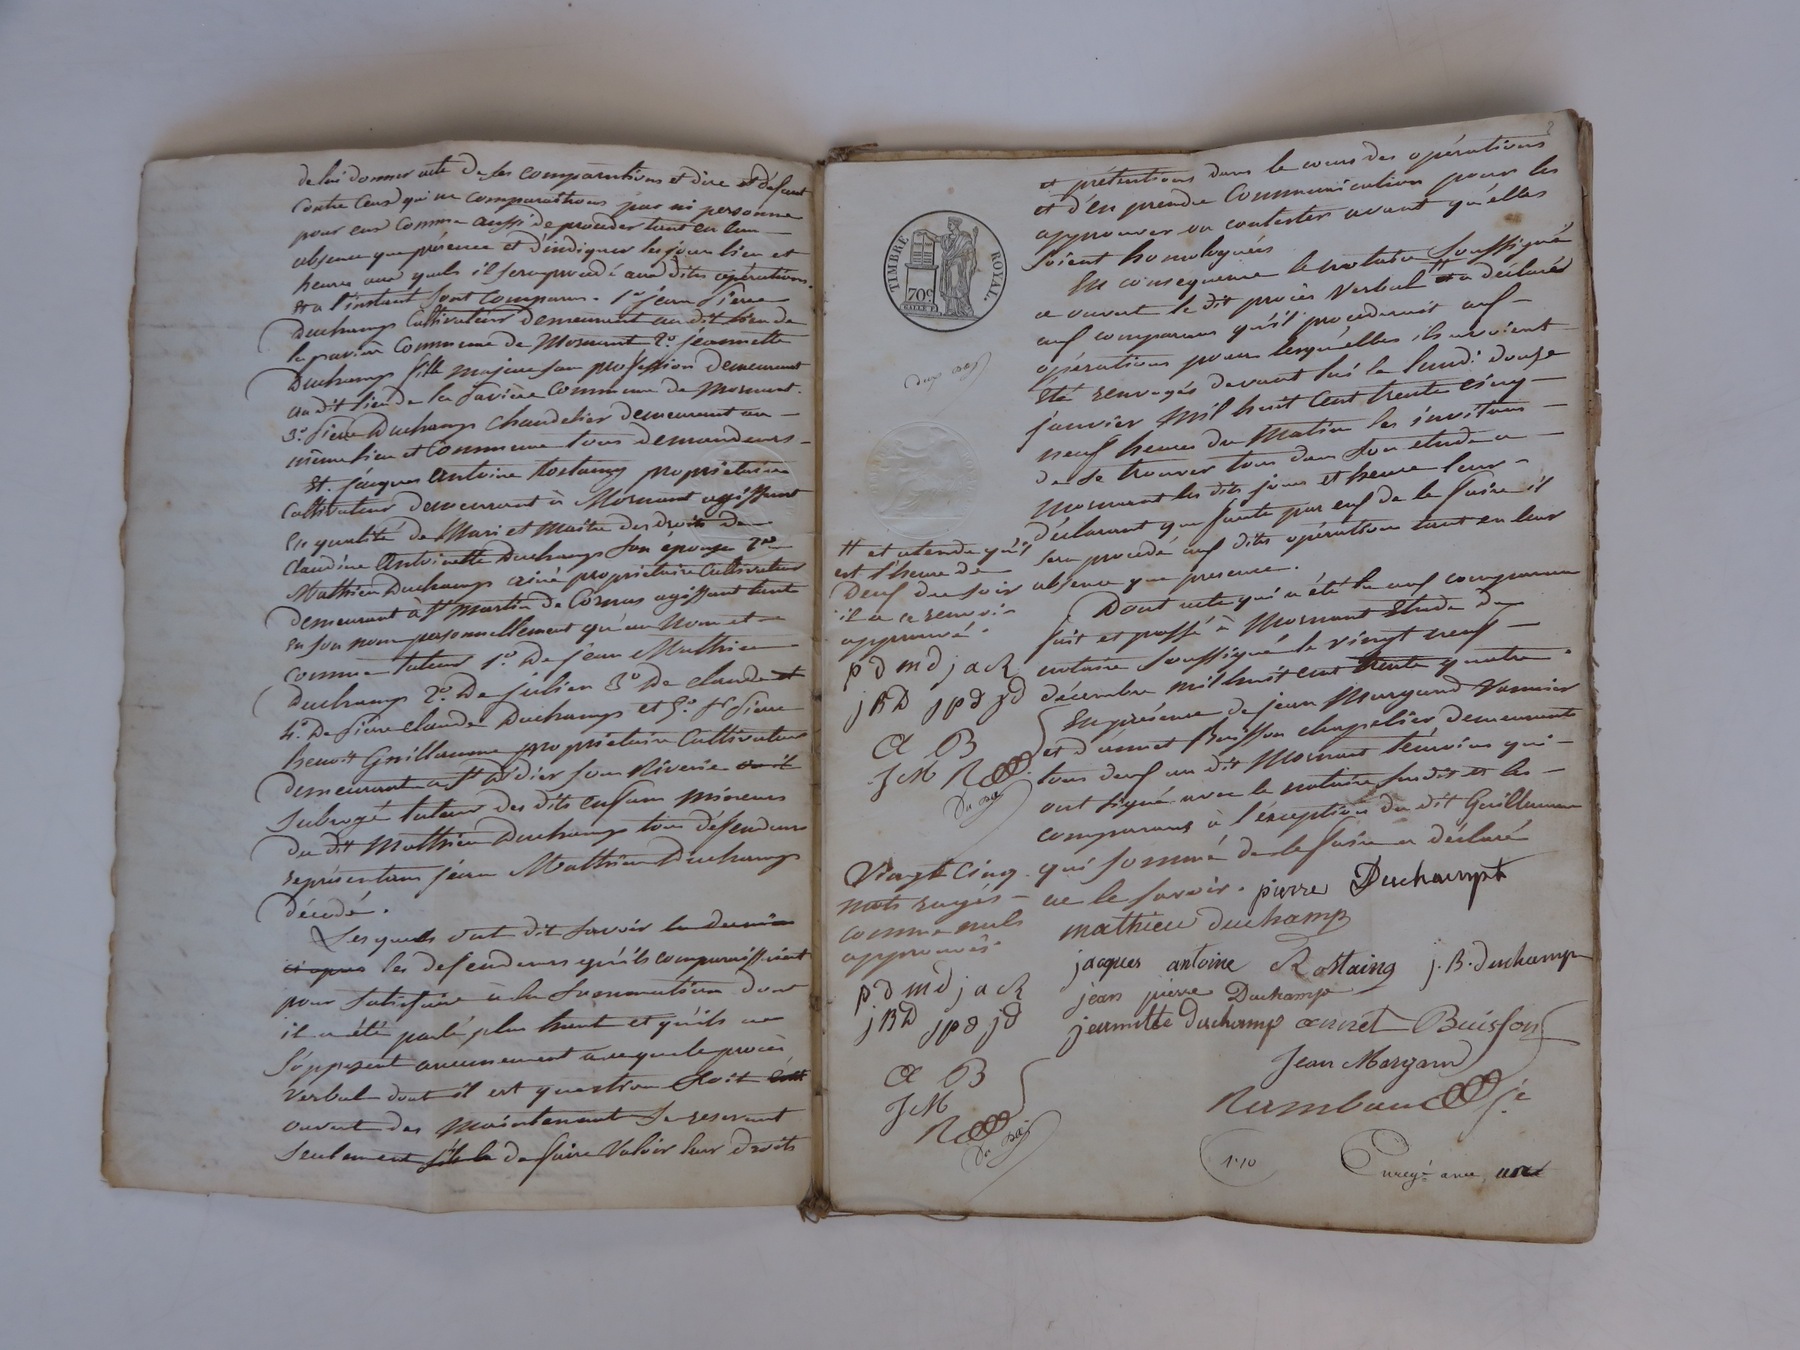 de lui donner acte de ses comparutions et dire et défaut
contre ceux qui ne comparaitrons pas ni personne
pour eux comme aussi de proceder tant en leur
absence que présence et d'indiquer les jour lieu et
heures aux quels il sera procédé aux dites opérations.
Et a l'instant sont comparus. 1º jean Pierre
Duchamp Cultivateur demeurant au dit lieu de
la pavière Commune de Mornant 2º jeannette
Duchamp fille majeure san profession demeurant
au dit lieu de la Pavière Commune de Mornant.
3º. Pierre Duchamp Chandelier demeurant au
même lieu et Commune tous demandeurs
Et. jacques Antoine Rostaing propriétaire
Cultivateur demeurant à Mornant agissant
en qualité de Mari et maître des droits de
Claudine Antoinette Duchamp son épouse 2º
Mathieu Duchamp ainé propriétaire Cultivateur
demeurant à St Martin de Cornas agissant tant
en son nom personnellement qu'au Nom et
comme tuteur 1º. De jean Mathieu
Duchamp 2º. De julien 3º De claude et
4º. De Pierre Claude Duchamp et 5º. Sr Pierre
benoit Guillaume propriétaire Cultivateur
demeurant a St Didier sous Riverie
Subrogé tuteur des dits enfans mineurs
du dit Mathieu Duchamp tous défendeurs
représentans jean Mathieu Duchamp
décédé.
Lesquels ont dit savoir
les defendeurs qu'ils comparaissaient
pour satisfaire à la Sommation dont
il a été parlé plus haut et qu'ils ne
s'opposent aucunement a ce que le procès
verbal dont il est question soit
ouvert des maintenant se reservant
seulement de faire Valoir leur droits
2
et prétentions dans le cours des opérations
et d'en prendre Communication pour les
approuver ou contester avant qu'elles
soient homologuées
TIMBRE ROYAL.
70c
En consequence le notaire Soussigné
a ouvert le dit procès Verbal # a déclaré
aux comparans qu'il procederait aux
opérations pour lesquelles ils avoient
été renvoyés devant lui le lundi douze
janvier Mil huit cent trente cinq
neuf heures du Matin les invitans
de se trouver tous dans son étude a
Mornant les dits jour et heure leur
déclarant que faute par eux de le faire il
sera procédé aux dites opération tant en leur
absence que presence.
# et attendu qu'il
est l'heure de
Deux du soir
il a ce renvoi
approuvé.
p d m d j a R
j B D j p d j d
a B
J M R
Dont acte qui a été lu aux comparans
fait et passé à Mornant Etude du
notaire soussigné le vingt neuf
décembre mil huit cent trente quatre.
En présence de jean Margand Vannier
et d'annet Buisson chapelier demeurants
tous deux au dit Mornant témoins qui
ont signé avec le notaire susdit et les
comparans à l'éxception du dit Guillaume
qui sommé de le faire a déclaré
ne le savoir.
Vingt Cinq
mots rayés
comme nuls
approuvés.
pierre Duchampt
mathieu duchamp
jacques antoine Rostaing j. B. duchamp
jean pierre Duchamp
jeannette duchamp annet Buisson
Jean Margand
p d m d j a R
j B D j p d j d
a B
J M
R
Rambaud